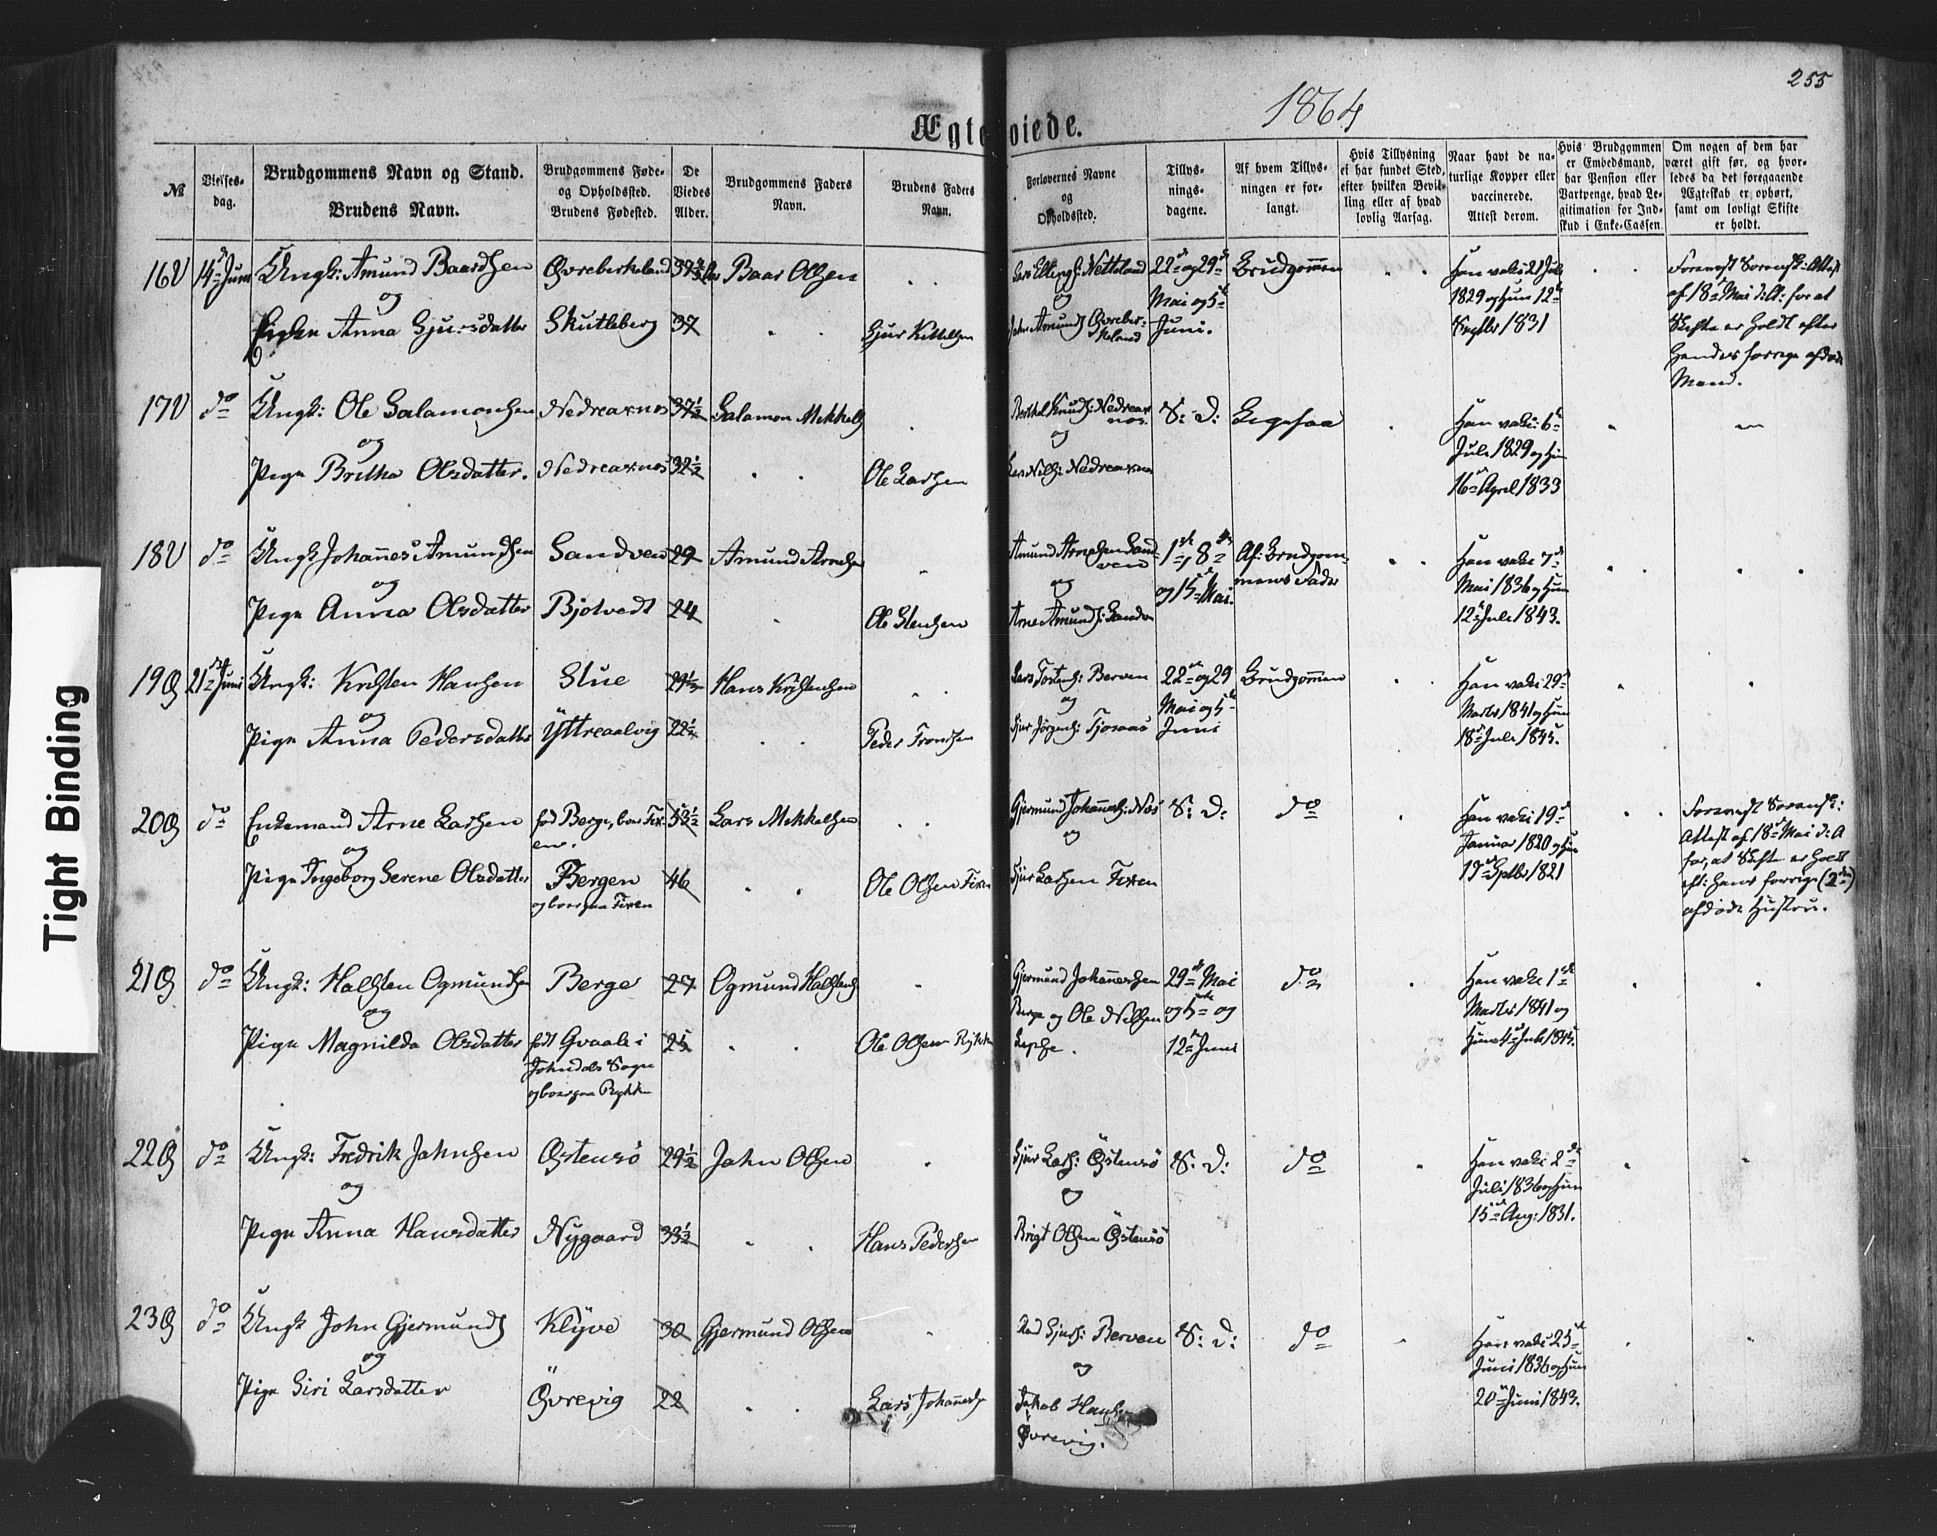 255
1864
Ægteviede.
№
Vielses-
dag.
Brudgommens Navn og Stand.
Brudens Navn.
Brudgommens Føde-
og Opholdssted.
Brudens Fødested.
De
Viedes
Alder.
Brudgommens Faders
Navn.
Brudens Faders
Navn.
Forlovernes Navne
og
Opholdssted.
Tillys-
nings-
dagene.
Af hvem Tillys-
ningen er for-
langt.
Hvis Tillysning
ei har fundet Sted,
efter hvilken Bevil-
ling eller af hvad
lovlig Aarsag.
Naar havt de na-
turlige Kopper eller
vaccinerede.
Attest derom.
Hvis Brudgommen
er Embedsmand,
har Pension eller
Vartpenge, hvad Le-
gitimation for Ind-
skud i Enke-Cassen.
Om nogen af dem har
været gift før, og hvor-
ledes da det foregaaende
Ægteskab er ophørt,
samt om lovligt Skifte
er holdt.
16V 14de Juni Ungk: Amund Baardsen Øvreberkeland Baar Olsen 22de og 29de Brudgommen Han vakc 21 Juli
og Mai og 5te 1829 og hun 12te
Anna Gjursdatter Skutleberg 37 Gjur Kittelsen Juni. Septbr 1831
Forevist Sorensk: Attest
af 18de Mai d: A: for at
Skifte er holdt efter
hendes forrige afdøde
Mand.
17V do Ungk: Ole Salamonsen Nedreaxnes 37½ Salamon Mikkels S: D: Han vakc: 6te
og Juli 1829 og hun
Pige Britha Olsdatter. Nedreaxnes 32½ Ole Larsen Lars Nils: Nedreaxnes 16de April 1833
18V do Ungk Johannes Amundsen Sandven 29 Amund Arnesen Amund Arnesen Sand-
ven 1ste, 8de Af Brudgom-
mens Fader Han vakc 7de
og og 15de Mai. Mai 1836 og hun
Pige Anna Olsdatter Bjotvedt 24 Ole Stensen Arne Amunds: Sandven 12te Juli 1843.
19Ø 21de Juni Ungk: Kristen Hansen Stue 29½ Hans Kristensen Lars Torstens: Berven 22de og 29 Brudgommen Han vakc 29de
og Mai og 5te Martz 1841 og hun
Pige Anna Pedersdatter Yttreaalvig 22½ Peder Trondsen Gjur Jørgens: Tjoraas Juni 18de Juli 1845.
20Ø do Enkemand Arne Larsen fød Berge, boer Fix-
en. 53½ Lars Mikkelsen Gjermund Johannes: Næs S: D: do Han vakc 19de
og Januar 1820 og hun
Pige Ingeborg Serene Olsdatter Bergen
og boer paa Fixen 46 Ole Olsen Fixen Gjur Larsen Fixen 19de Septbr 1821
Forevist Sorensk:
Attest af 18de Mai d: A
for, at Skifte er holdt
eft: hans forrige (2den)
afdøde Hustru.
21Ø do Ungk: Halsten Ogmundsen Berge 27 Ogmund Halstens Gjermund Johannessen 29de Mai do Han vakc 1ste
og Berge og Ole Nilsen og 5te og Martz 1841 og
Pige Magnilda Olsdatter født Qvaale i
Johndals Sogn
og boer paa Rykken 25 Ole Olsen Rykken 12te Juni Juli 1845.
22Ø do Ungk: Fredrik Johnsen Østensø 29½ John Olsen Gjur Lars: Østensø S: D: do Han vakc 2de
og Juli 1836 og hun
15de Aug: 1831.
Pige Anna Hansdatter Nygaard 33½ Hans Pedersen Brigt Olsen Østensø
23Ø do Ungk John Gjermunds Klyve 30 Gjermund Olsen Berven S: D: do Han vakc 25de
og og Juni 1836 og hun
Pige Siri Larsdatter Øvrevig 22 Lars Johannes Jakob Hansen
Øvrevig. 20de Juni 1843.
Tight Binding